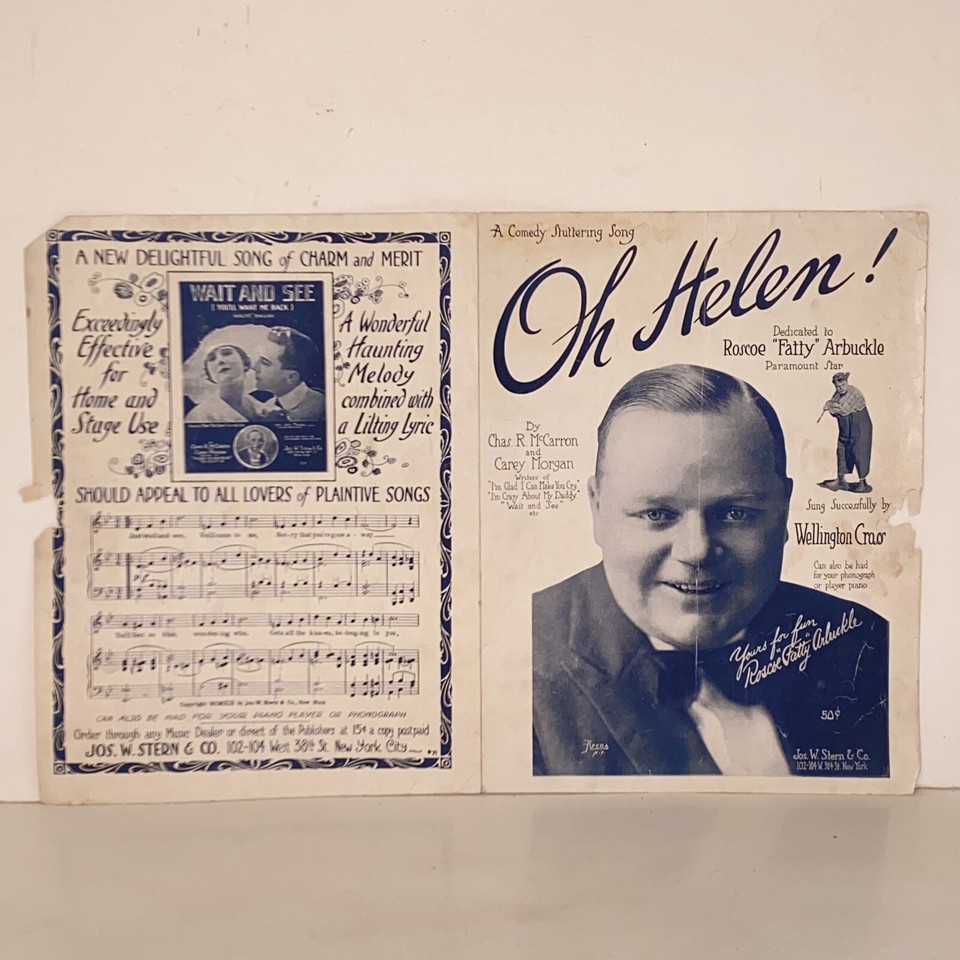 A NEW DELIGHTFUL SONG of CHARM and MERIT
WAIT AND SEE
(YOU'LL WANT ME BACK)
Exceedingly
Effective
for
Home and
Stage Use
A Wonderful
Haunting
Melody
combined with
a Lilting Lyric
SHOULD APPEAL TO ALL LOVERS of PLAINTIVE SONGS
CAN ALSO BE HAD FOR YOUR PIANO PLAYER OR PHONOGRAPH
Order through any Music Dealer or direct of the Publishers at 15¢ a copy postpaid
JOS. W. STERN & CO. 102-104 West 38th St. New York City
A Comedy Stuttering Song
Oh Helen!
Dedicated to
Roscoe "Fatty" Arbuckle
Paramount Star
By
Chas. R. McCarron
and
Carey Morgan
Writers of
"I'm Glad I Can Make You Cry"
"I'm Crazy About My Daddy"
"Wait and See"
etc
Sung Successfully by
Wellington
Can also be had
for your phonograph
or player piano
Yours for fun
Roscoe "Fatty" Arbuckle
50¢
N.Y.
Jos. W. Stern & Co.
102-104 W. 38th St. New York